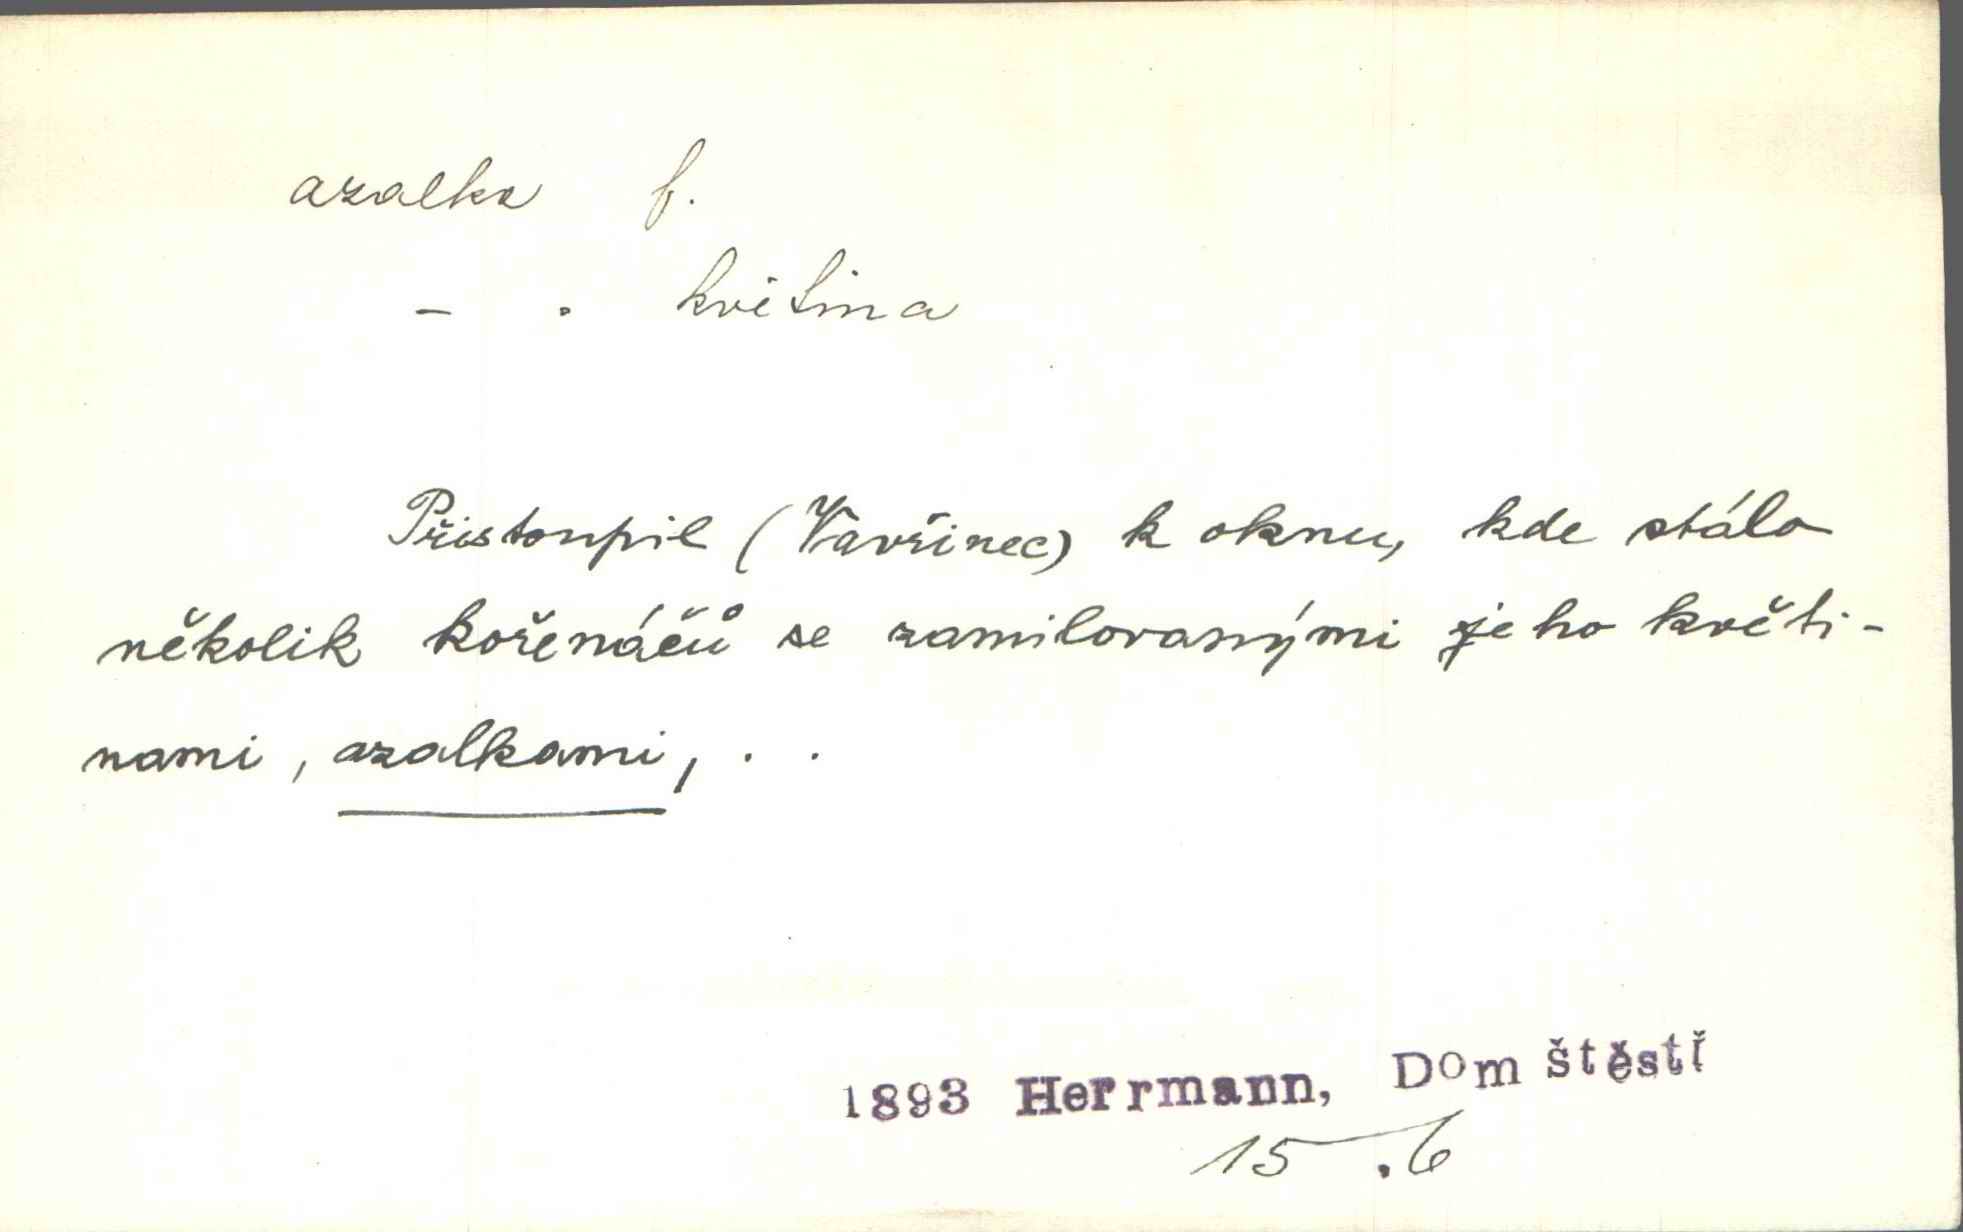 azalka f.
- . květina
Přistoupil (Vavřinec) k oknu, kde stálo
několik kořenáčů se zamilovanými jeho květi-
nami, azalkami, . .
1893 Herrmann, Dom štěstí
15 .6